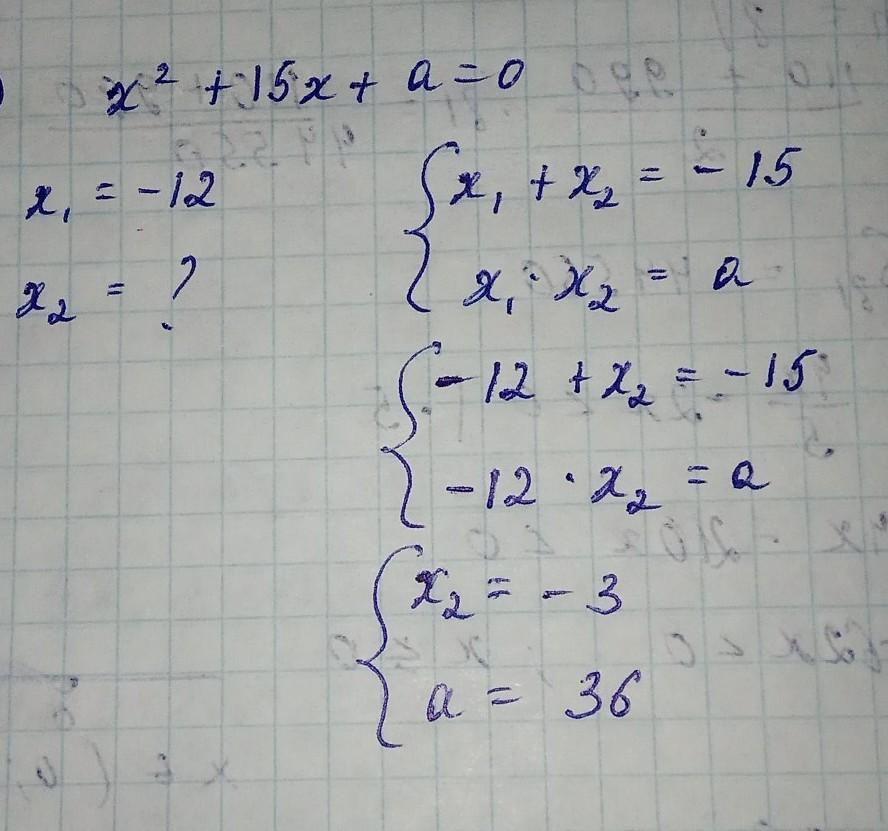 ) x² + 15x + a = 0
x₁ = -12
x₂ = ?
x₁ + x₂ = -15
x₁ · x₂ = a
-12 + x₂ = -15
-12 · x₂ = a
x₂ = -3
a = 36